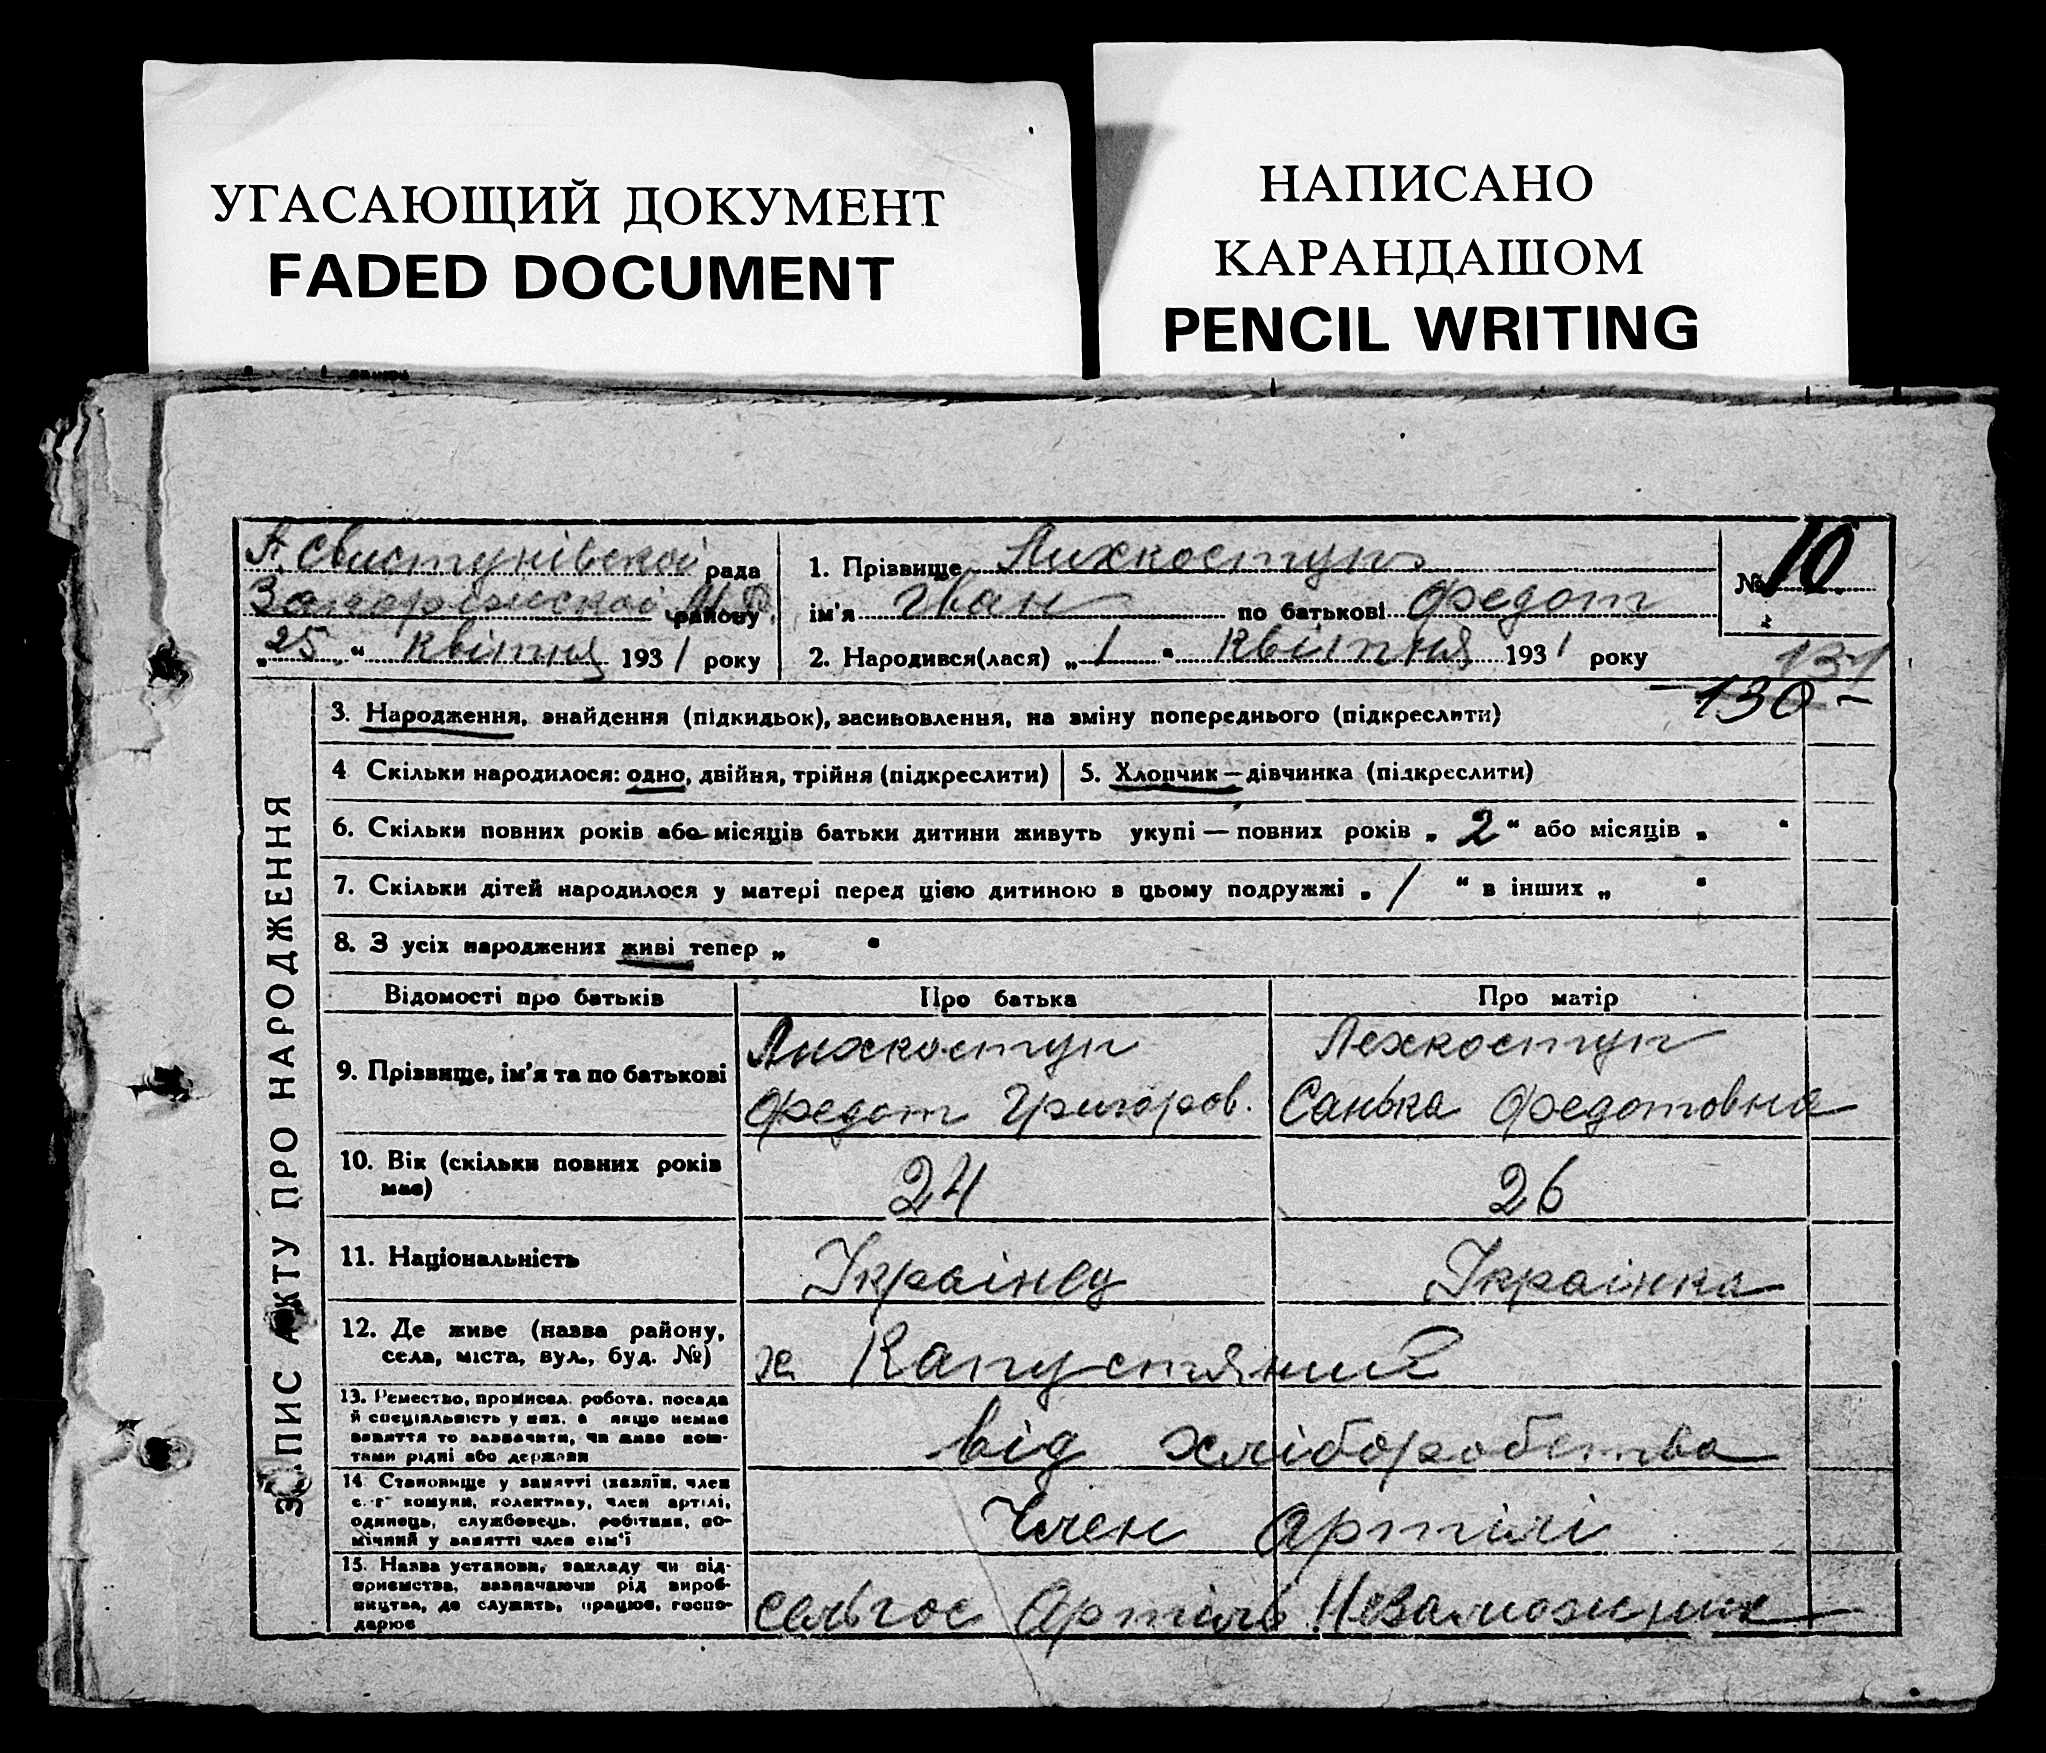 УГАСАЮЩИЙ ДОКУМЕНТ
FADED DOCUMENT
НАПИСАНО
КАРАНДАШОМ
PENCIL WRITING
А. Свистунівскої рада
Запоріжскої М.Р. району
„25“ Квітня 1931 року
1. Прізвище Лихкоступ
ім'я Іван по батькові Федот
2. Народився(лася) „1“ Квітня 1931 року
№ 10
131
130 –
ЗАПИС АКТУ ПРО НАРОДЖЕННЯ
3. Народження, знайдення (підкидьок), засиновлення, на зміну попереднього (підкреслити)
4 Скільки народилося: одно, двійня, трійня (підкреслити)
5. Хлопчик — дівчинка (підкреслити)
6. Скільки повних років або місяців батьки дитини живуть укупі — повних років „2“ або місяців „ “
7. Скільки дітей народилося у матері перед цією дитиною в цьому подружжі „1 “ в інших „ “
8. З усіх народжених живі тепер „ “
Відомості про батьків
Про батька
Про матір
9. Прізвище, ім'я та по батькові
Лихкоступ
Федот Григоров.
Лехкоступ
Санька Федотовна
10. Вік (скільки повних років
має)
24
26
11. Національність
Українец
Українка
12. Де живе (назва району,
села, міста, вул., буд. №)
х. Капустяний
13. Ремество, промисел, робота, посада
й спеціяльність у них, а якщо немає
заняття то зазначити, чи живе кош-
тами рідні або держави
від хліборобства
14. Становище у занятті (хазяїн, член
с.-г. комуни, колективу, член артілі,
одинець, службовець, робітник, по-
мічний у занятті член сім'ї
Член Артілі
15. Назва установи, закладу чи під-
приємства, зазначаючи рід вироб-
ництва, де служить, працює, госпо-
дарює
сельгос Артіль Незаможник